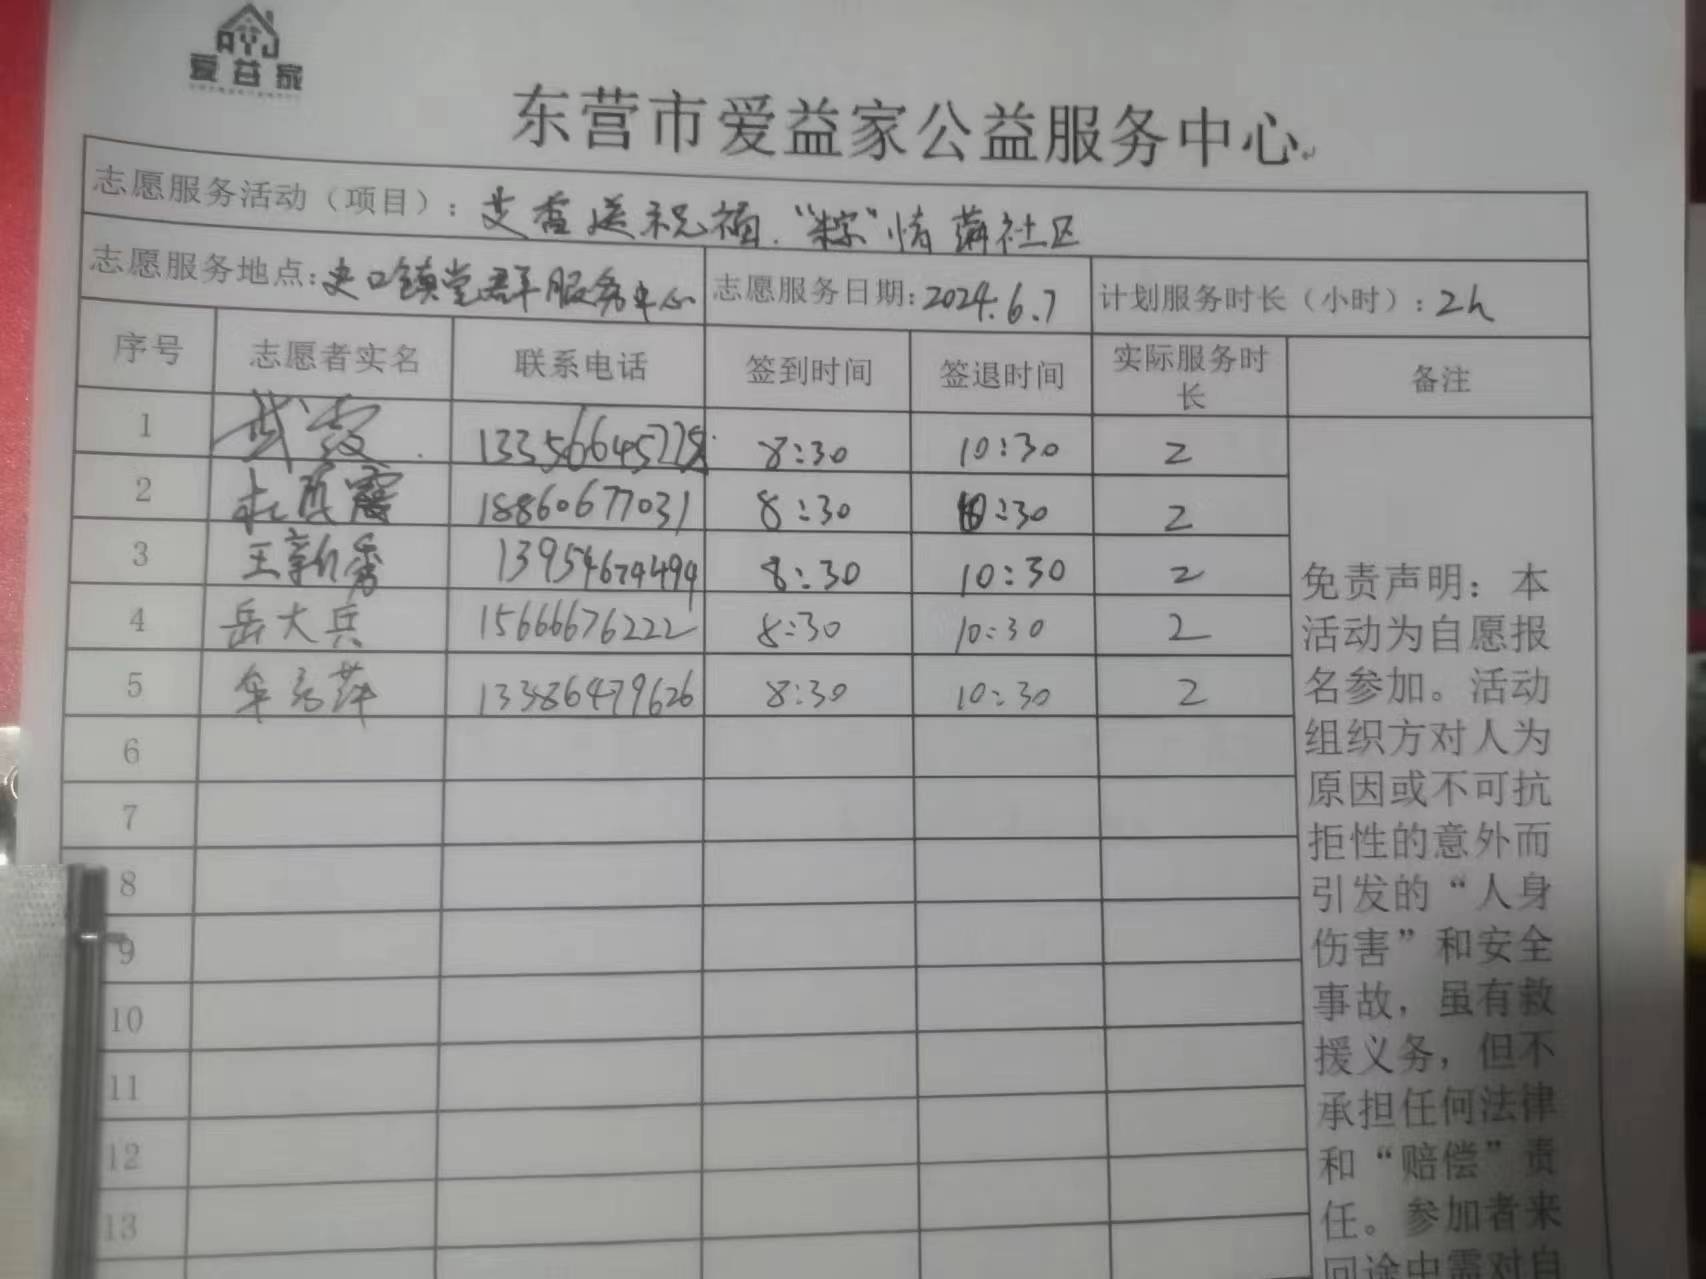 AYJ
爱益家
东营市爱益家公益服务中心
志愿服务活动（项目）：艾香送祝福，“粽”情满社区
志愿服务地点：史口镇党群服务中心 志愿服务日期：2024.6.7 计划服务时长（小时）：2h
序号 志愿者实名 联系电话 签到时间 签退时间 实际服务时长 备注
1 武霞 8:30 10:30 2
2 杜 霞 18860677031 8:30 10:30 2
3 王新秀 13954674494 8:30 10:30 2
4 岳大兵 15666676222 8:30 10:30 2
5 牟 萍 13386479626 8:30 10:30 2
6
7
8
9
10
11
12
13
免责声明：本
活动为自愿报
名参加。活动
组织方对人为
原因或不可抗
拒性的意外而
引发的“人身
伤害”和安全
事故，虽有救
援义务，但不
承担任何法律
和“赔偿”责
任。参加者来
回途中需对自